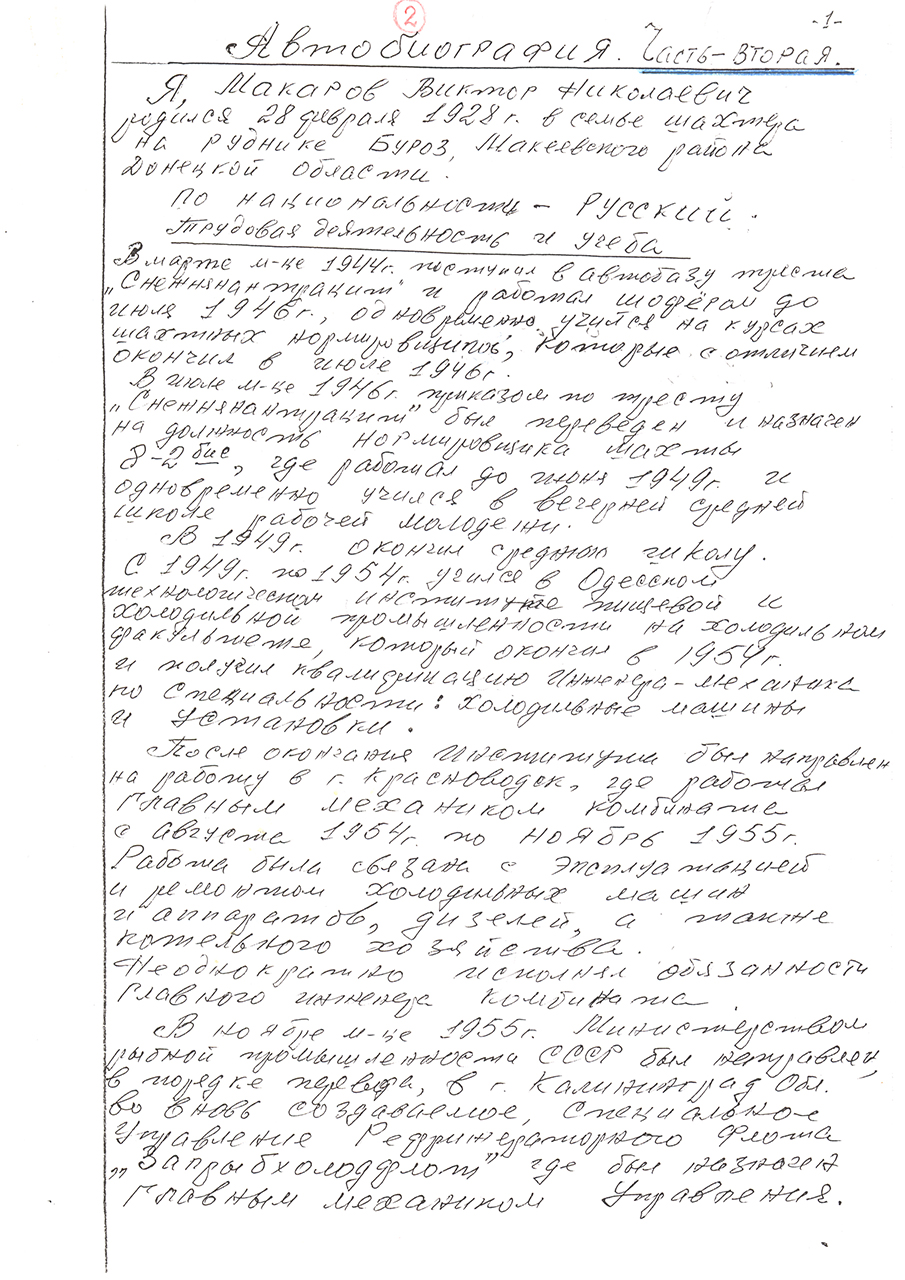 2
-1-
Автобиография. Часть-вторая.
Я, Макаров Виктор Николаевич
родился 28 февраля 1928 г. в семье шахтера
на руднике Буроз, Макеевского района
Донецкой области.
По национальности - Русский.
Трудовая деятельность и учеба
В марте м-це 1944 г. поступил в автобазу треста
„Снежнянантрацит" и работал шофёром до
июля 1946 г., одновременно учился на курсах
шахтных нормировщиков, которые с отличием
окончил в июле 1946 г.
В июле м-це 1946 г. приказом по тресту
„Снежнянантрацит" был переведен и назначен
на должность нормировщика шахты
8-2 бис, где работал до июня 1949 г. и
одновременно учился в вечерней средней
школе рабочей молодежи.
В 1949 г. окончил среднюю школу.
С 1949 г. по 1954 г. учился в Одесском
технологическом институте пищевой и
холодильной промышленности на холодильном
факультете, который окончил в 1954 г.
и получил квалификацию Инженера-механика
по специальности: холодильные машины
и установки.
После окончания Института был направлен
на работу в г. Красноводск, где работал
Главным механиком комбината
с августа 1954 г. по ноябрь 1955 г.
Работа была связана с эксплуатацией
и ремонтом холодильных машин
и аппаратов, дизелей, а также
котельного хозяйства.
Неоднократно исполнял обязанности
Главного инженера комбината
В ноябре м-це 1955 г. Министерством
рыбной промышленности СССР был направлен,
в порядке перевода, в г. Калининград Обл.
во вновь создаваемое, специальное
Управление Рефрижераторного Флота
„Запрыбхолодфлот" где был назначен
Главным механиком Управления.